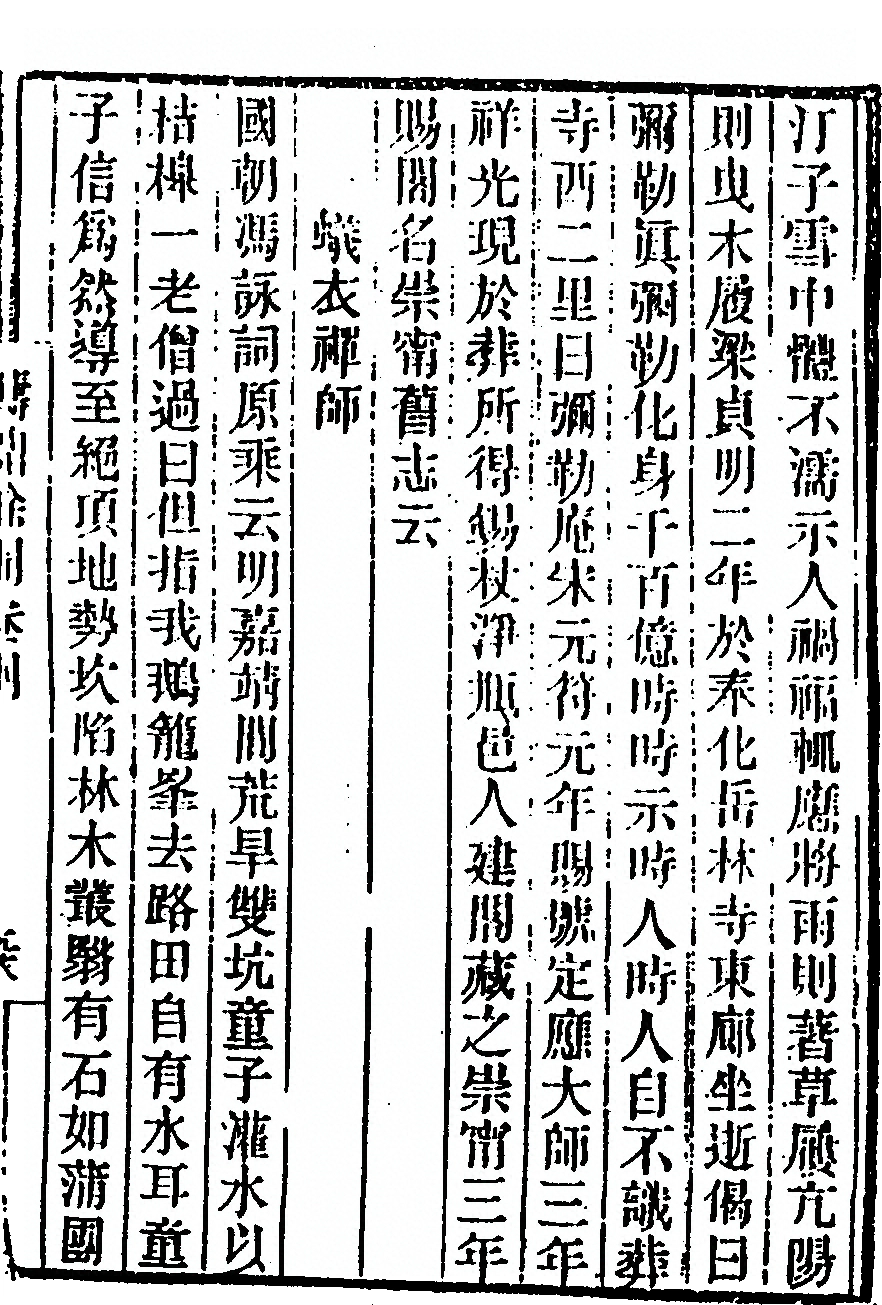 汀子雪中體不濡示人禍福輒應將雨則著草屨亢陽
則曳木屐梁貞明二年於奉化岳林寺東廊坐逝偈曰
彌勒眞彌勒化身千百億時時示時人時人自不識葬
寺西二里曰彌勒庵宋元符元年賜號定應大師三年
祥光現於葬所得錫杖淨瓶邑人建閣藏之崇甯三年
賜閣名崇甯舊志云
蟻衣禪師
國朝馮詠詞原乘云明嘉靖間荒旱雙坑童子灌水以
桔槔一老僧過曰但指我鵝籠峯去路田自有水耳童
子信爲然導至絕頂地勢坎陷林木叢翳有石如蒲團